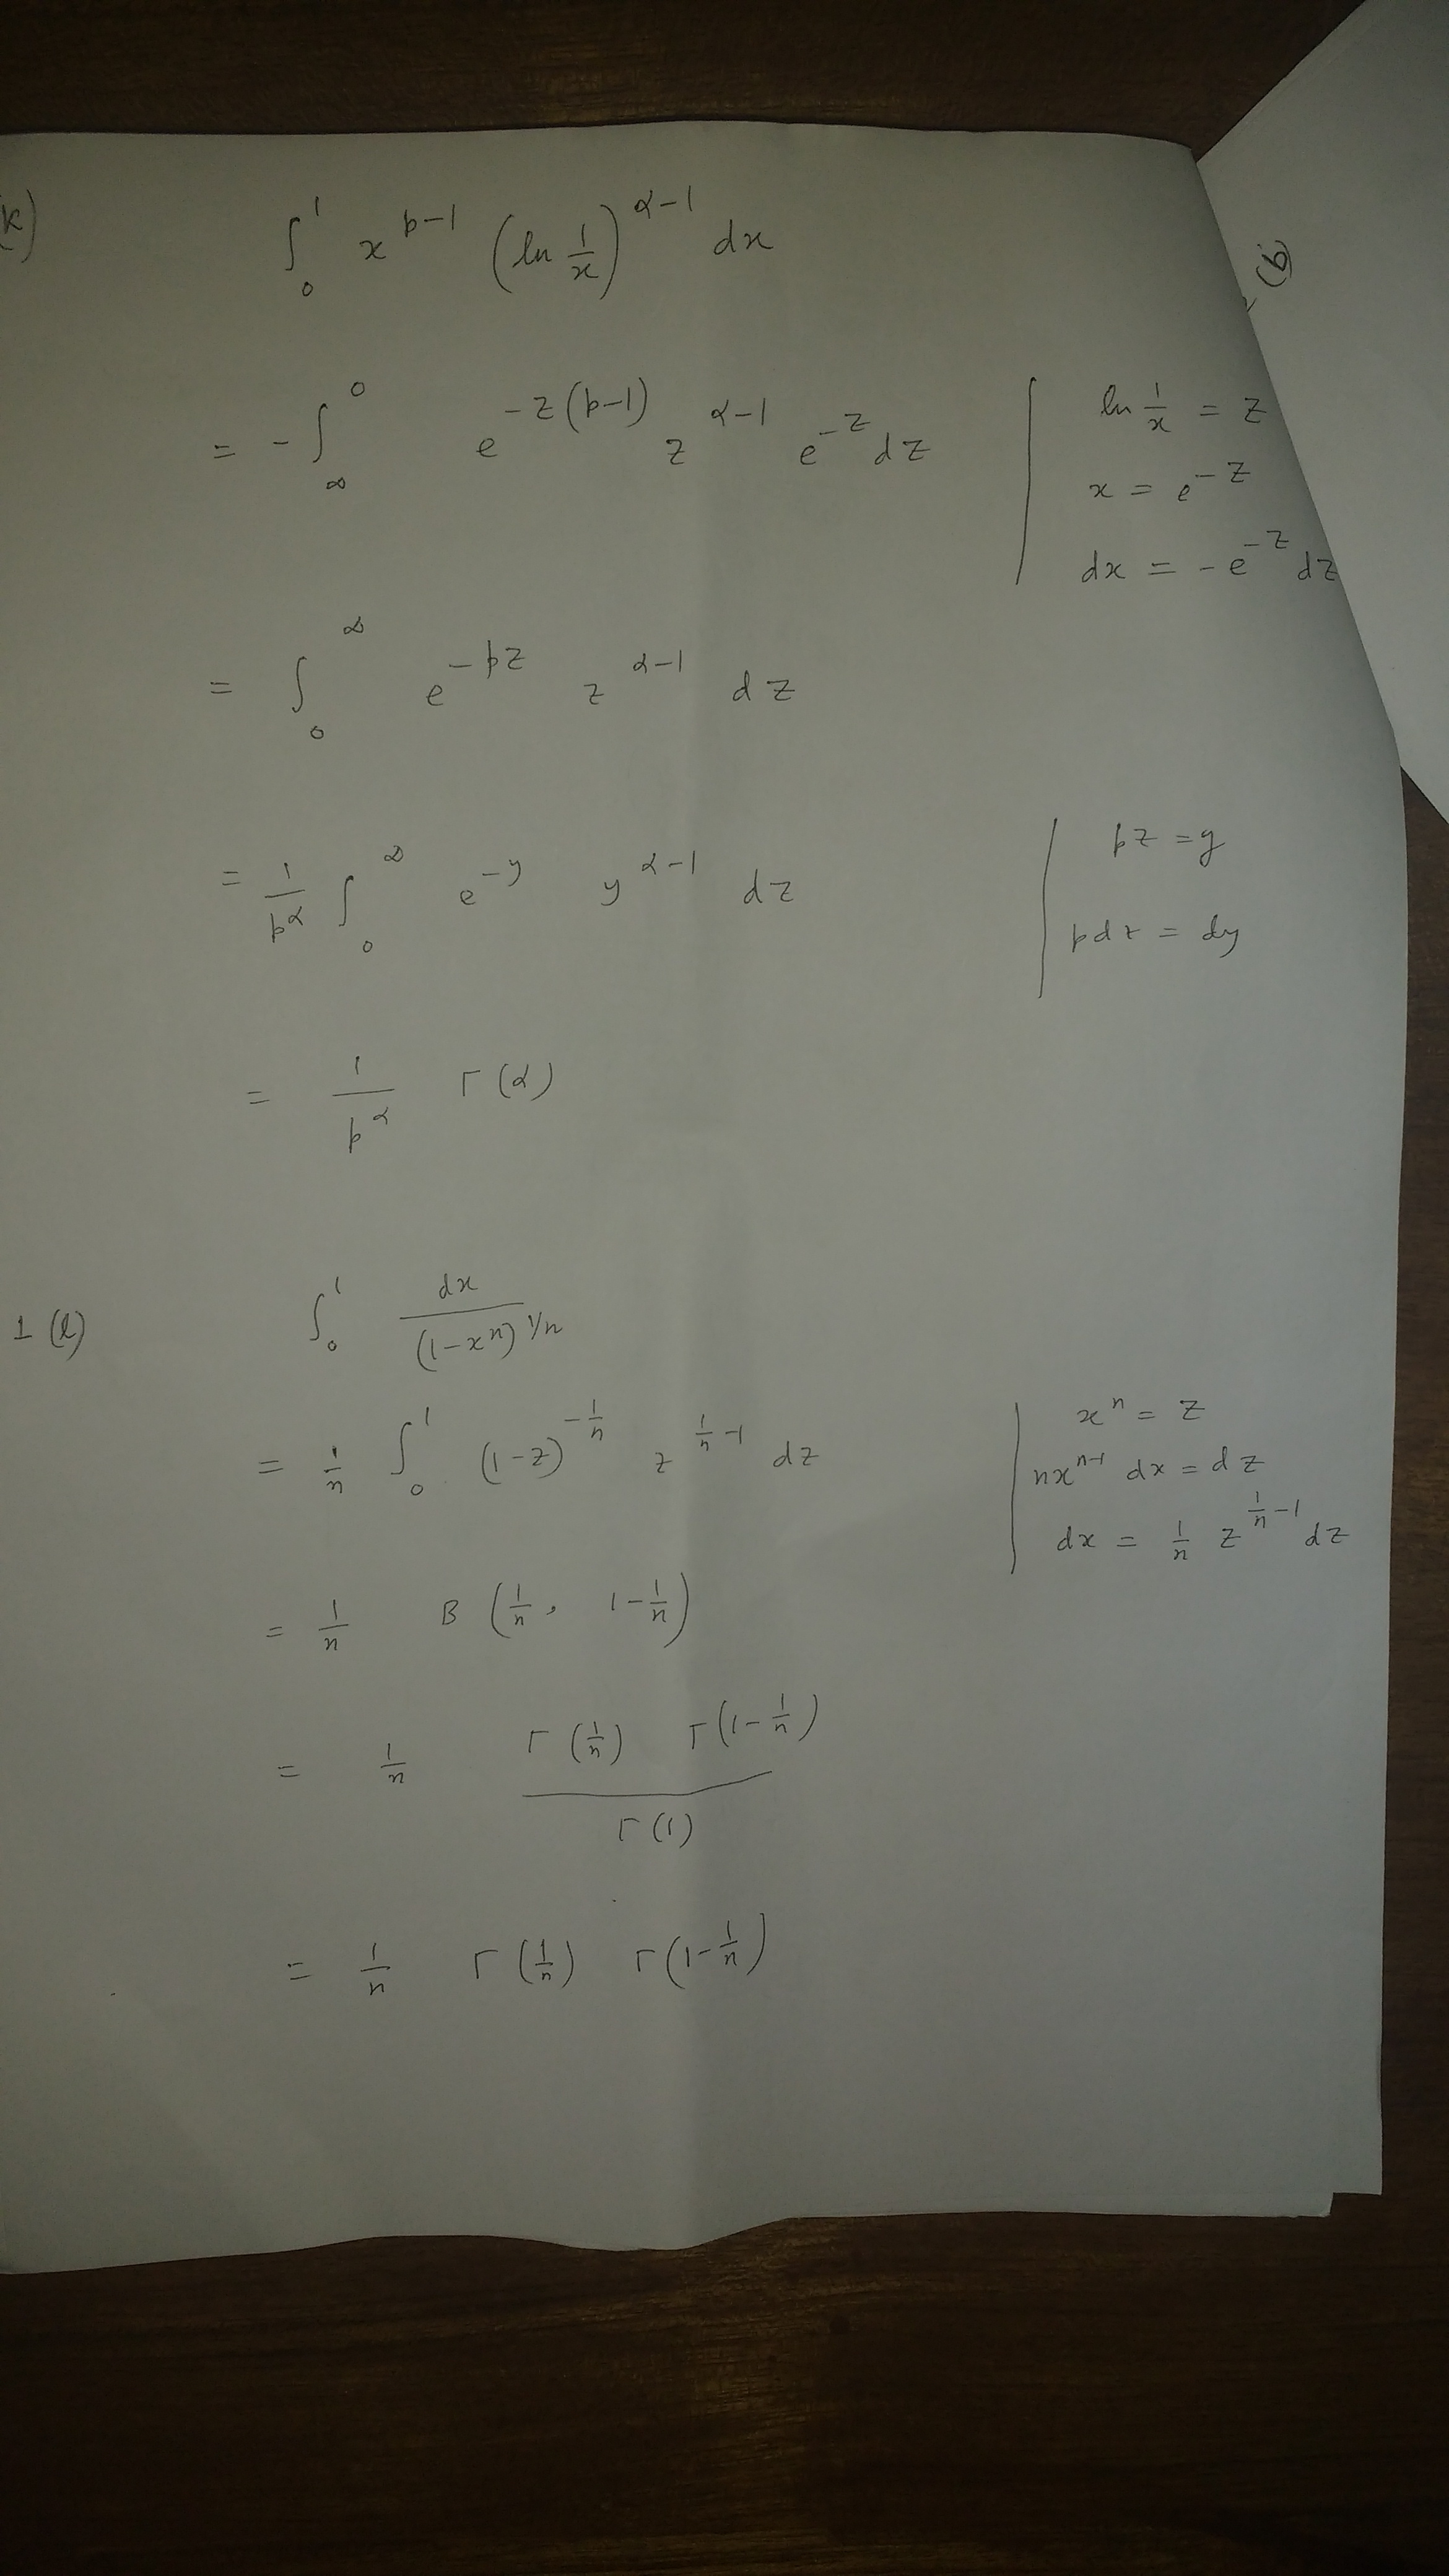 (k) ∫₀¹ x^{p-1} (ln 1/x)^{α-1} dx
= - ∫_∞^0 e^{-z(p-1)} z^{α-1} e^{-z} dz | ln 1/x = z
x = e^{-z}
dx = - e^{-z} dz
= ∫_0^∞ e^{-pz} z^{α-1} dz
= 1/p^α ∫_0^∞ e^{-y} y^{α-1} dz | pz = y
pdz = dy
= 1/p^α Γ(α)
1 (l) ∫₀¹ dx/(1-x^n)^{1/n}
= 1/n ∫₀¹ (1-z)^{-1/n} z^{1/n -1} dz | x^n = z
nx^{n-1} dx = dz
dx = 1/n z^{1/n -1} dz
= 1/n B (1/n, 1-1/n)
= 1/n Γ(1/n) Γ(1-1/n) / Γ(1)
= 1/n Γ(1/n) Γ(1-1/n)
(b)